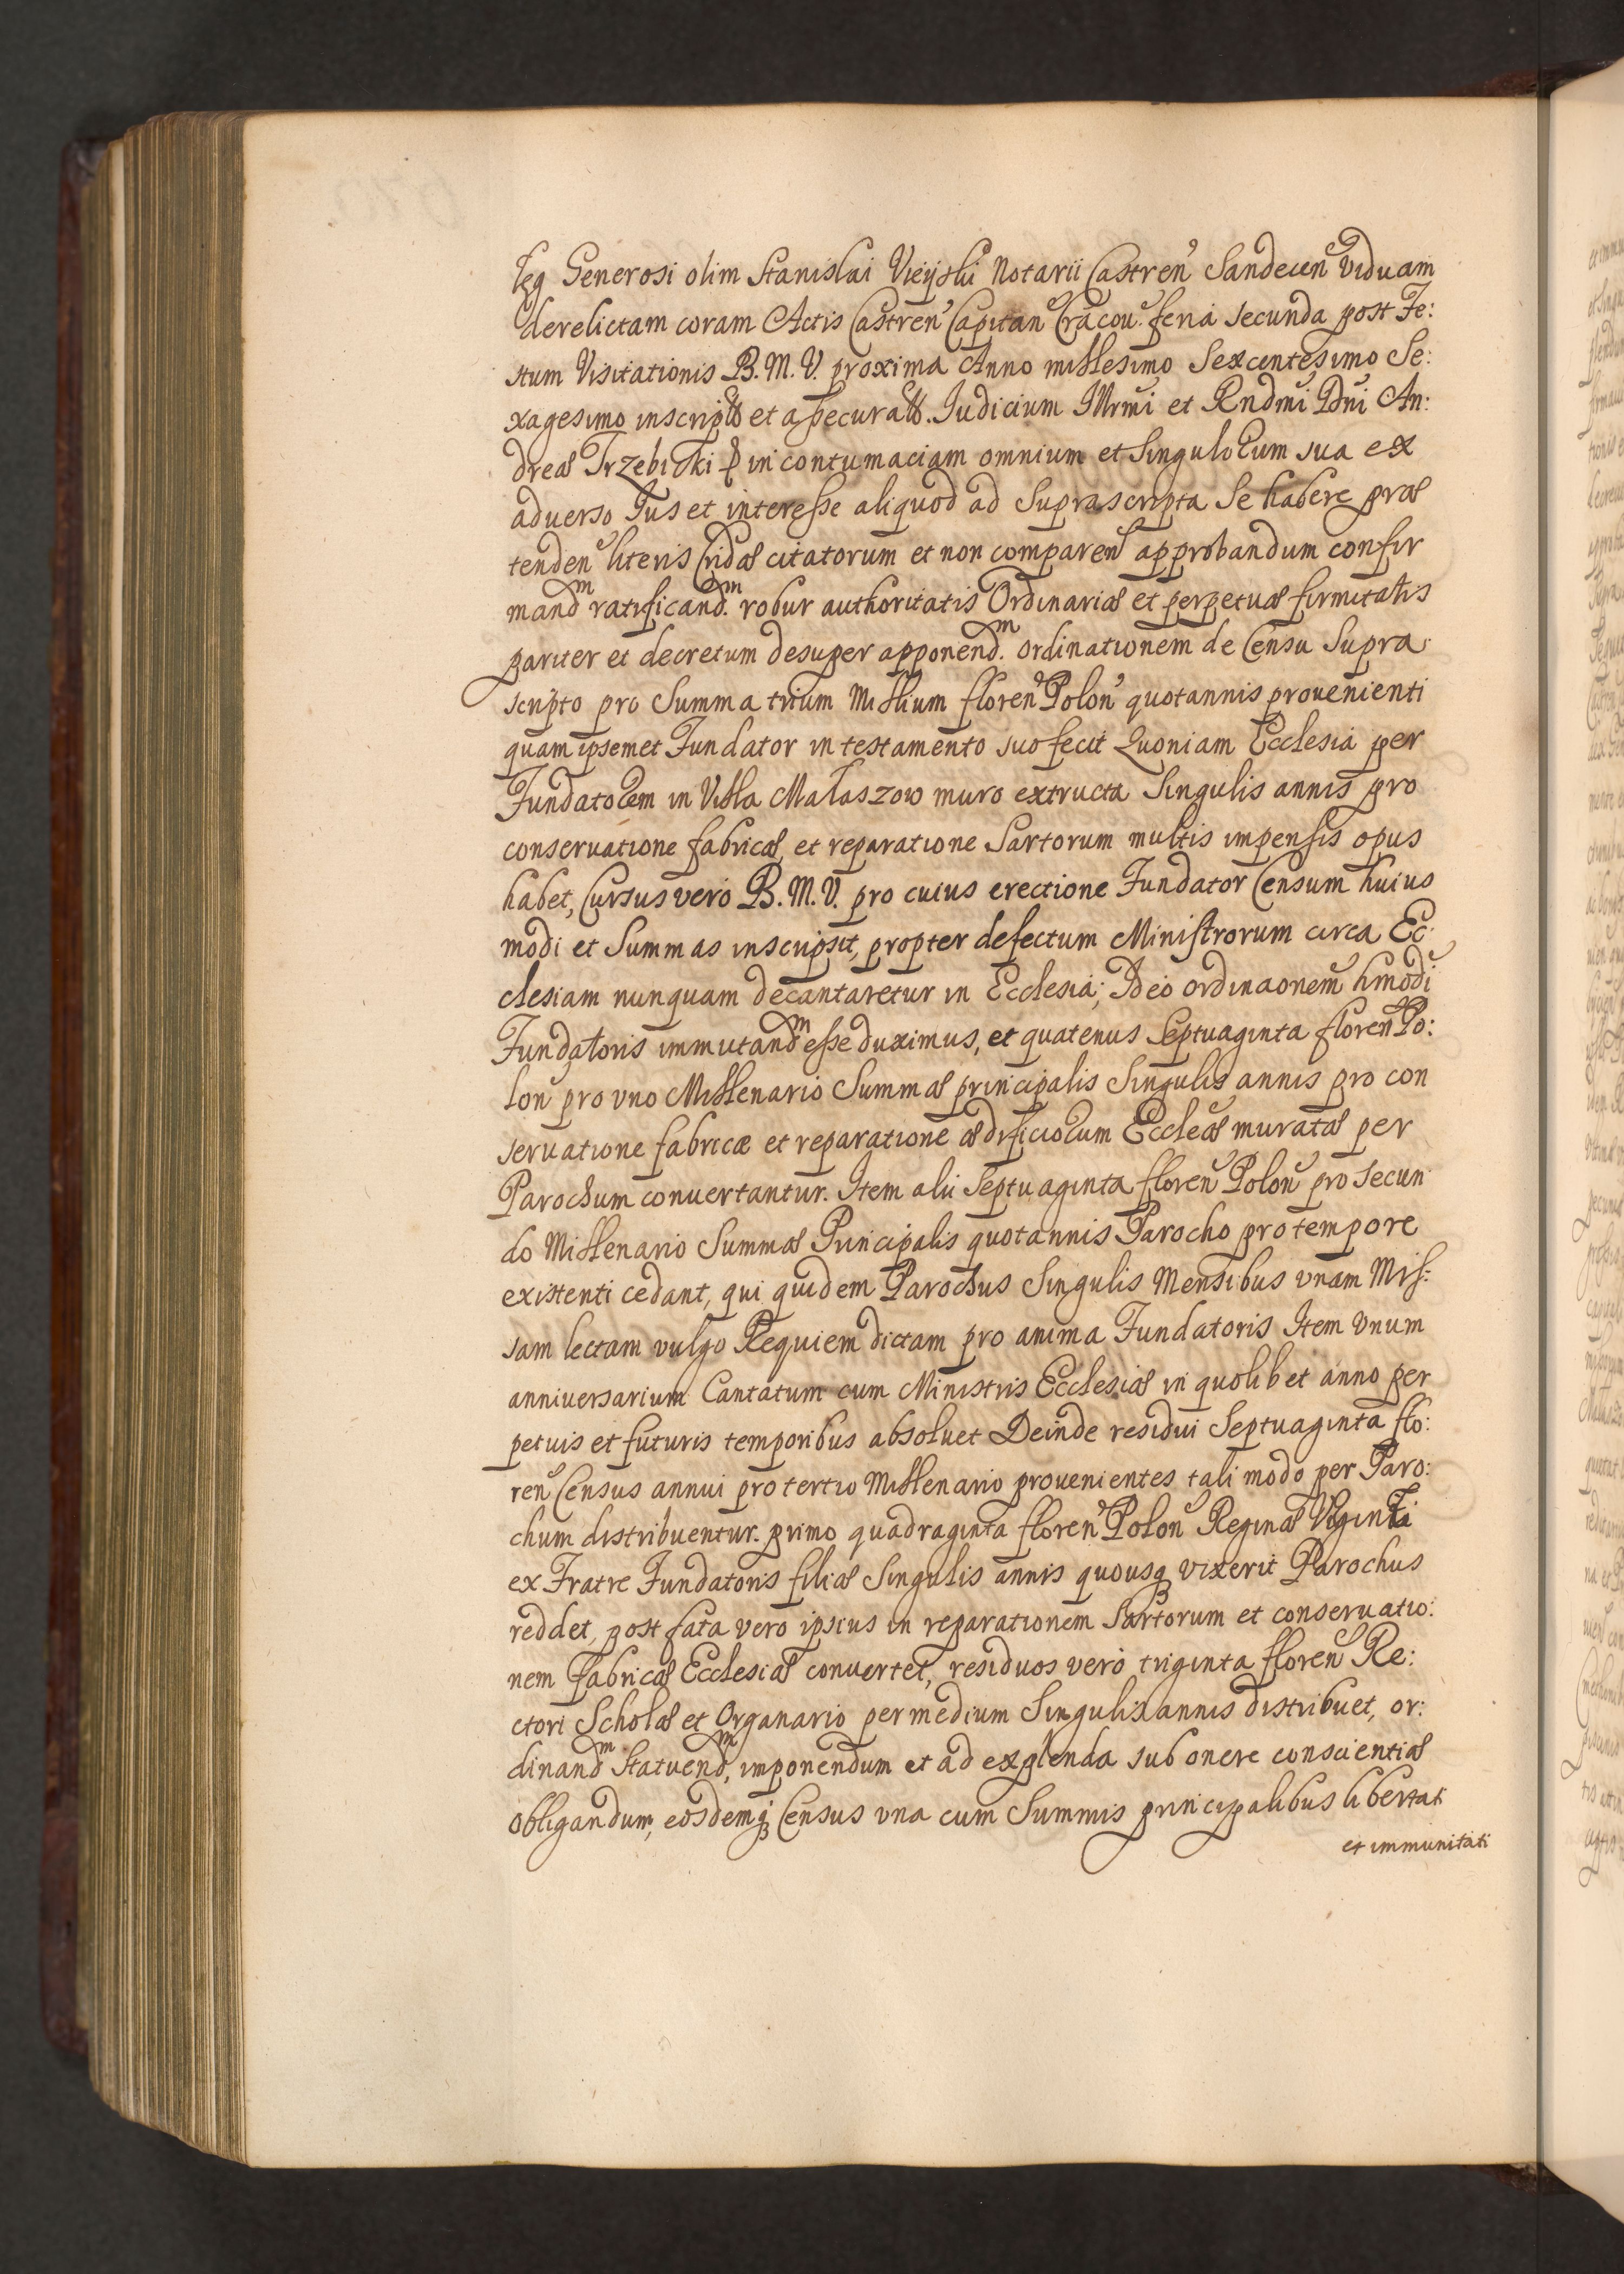 Generosi olim Stanislai Vieÿski Notarii Castreñ Sandeceñ Viduam
derelictam coram Actis Castreñ Capitañ Cracou. feria secunda post Fe:
stum Visitationis B. M. V. proxima Anno millesimo Sexcentesimo Se:
xagesimo et Judicium Illrmi et Rndmi Dni An:
dreæ Trzebicki in contumaciam omnium et Singulorum sua ex
aduerso Jus et interesse aliquod ad Suprascripta Se habere præ
tendeñ literis Cridæ citatorum et non compareñ approbandum confir
mandm ratificandm. robur authoritatis Ordinariæ et perpetuæ firmitatis
pariter et decretum desuper apponendm. ordinationem de Censu Supra
scripto pro Summa trium Millium floreñ Poloñ quotannis prouenienti
quam ipsemet Fundator in testamento suo fecit Quoniam Ecclesia per
Fundatorem in Villa Małaszow muro extructa Singulis annis pro
conseruatione fabricæ, et reparatione Sartorum multis impensis opus
habet, Cursus vero B. M. V. pro cuius erectione Fundator Censum huius
modi et Summas inscripsit, propter defectum Ministrorum circa Ec:
clesiam nunquam decantaretur in Ecclesia; Ideo ordinaonem hmodi
Fundatoris immutandm esse duximus, et quatenus Septuaginta floreñ Po:
loñ pro vno Millenario Summæ principalis Singulis annis pro con
seruatione fabricæ et reparatione ædificiorum Eccleæ muratæ per
Parochum conuertantur. Item alii Septuaginta floreñ Poloñ pro secun
do Millenario Summæ Principalis quotannis Parocho pro tempore
existenti cedant, qui quidem Parochus Singulis Mensibus vnam Mis:
sam lectam vulgo Requiem dictam pro anima Fundatoris Item Vnum
anniuersarium Cantatum cum Ministris Ecclesiæ in quolibet anno per
petuis et futuris temporibus absoluet Deinde residui Septuaginta flo:
reñ Census annui pro tertio Millenario prouenientes tali modo per Paro:
chum distribuentur. primo quadraginta floreñ Poloñ Reginæ
ex Fratre Fundatoris filiæ Singulis annis quousq vixerit Parochus
reddet, post fata vero ipsius in reparationem Sartorum et conseruatio:
nem Fabricæ Ecclesiæ conuertet, residuos vero triginta floreñ Re:
ctori Scholæ et Organario per medium Singulis annis distribuet, or:
dinandm Statuendm, imponendum et ad explenda sub onere conscientiæ
obligandum, eosdemq Census vna cum Summis principalibus libertati
et immunitati